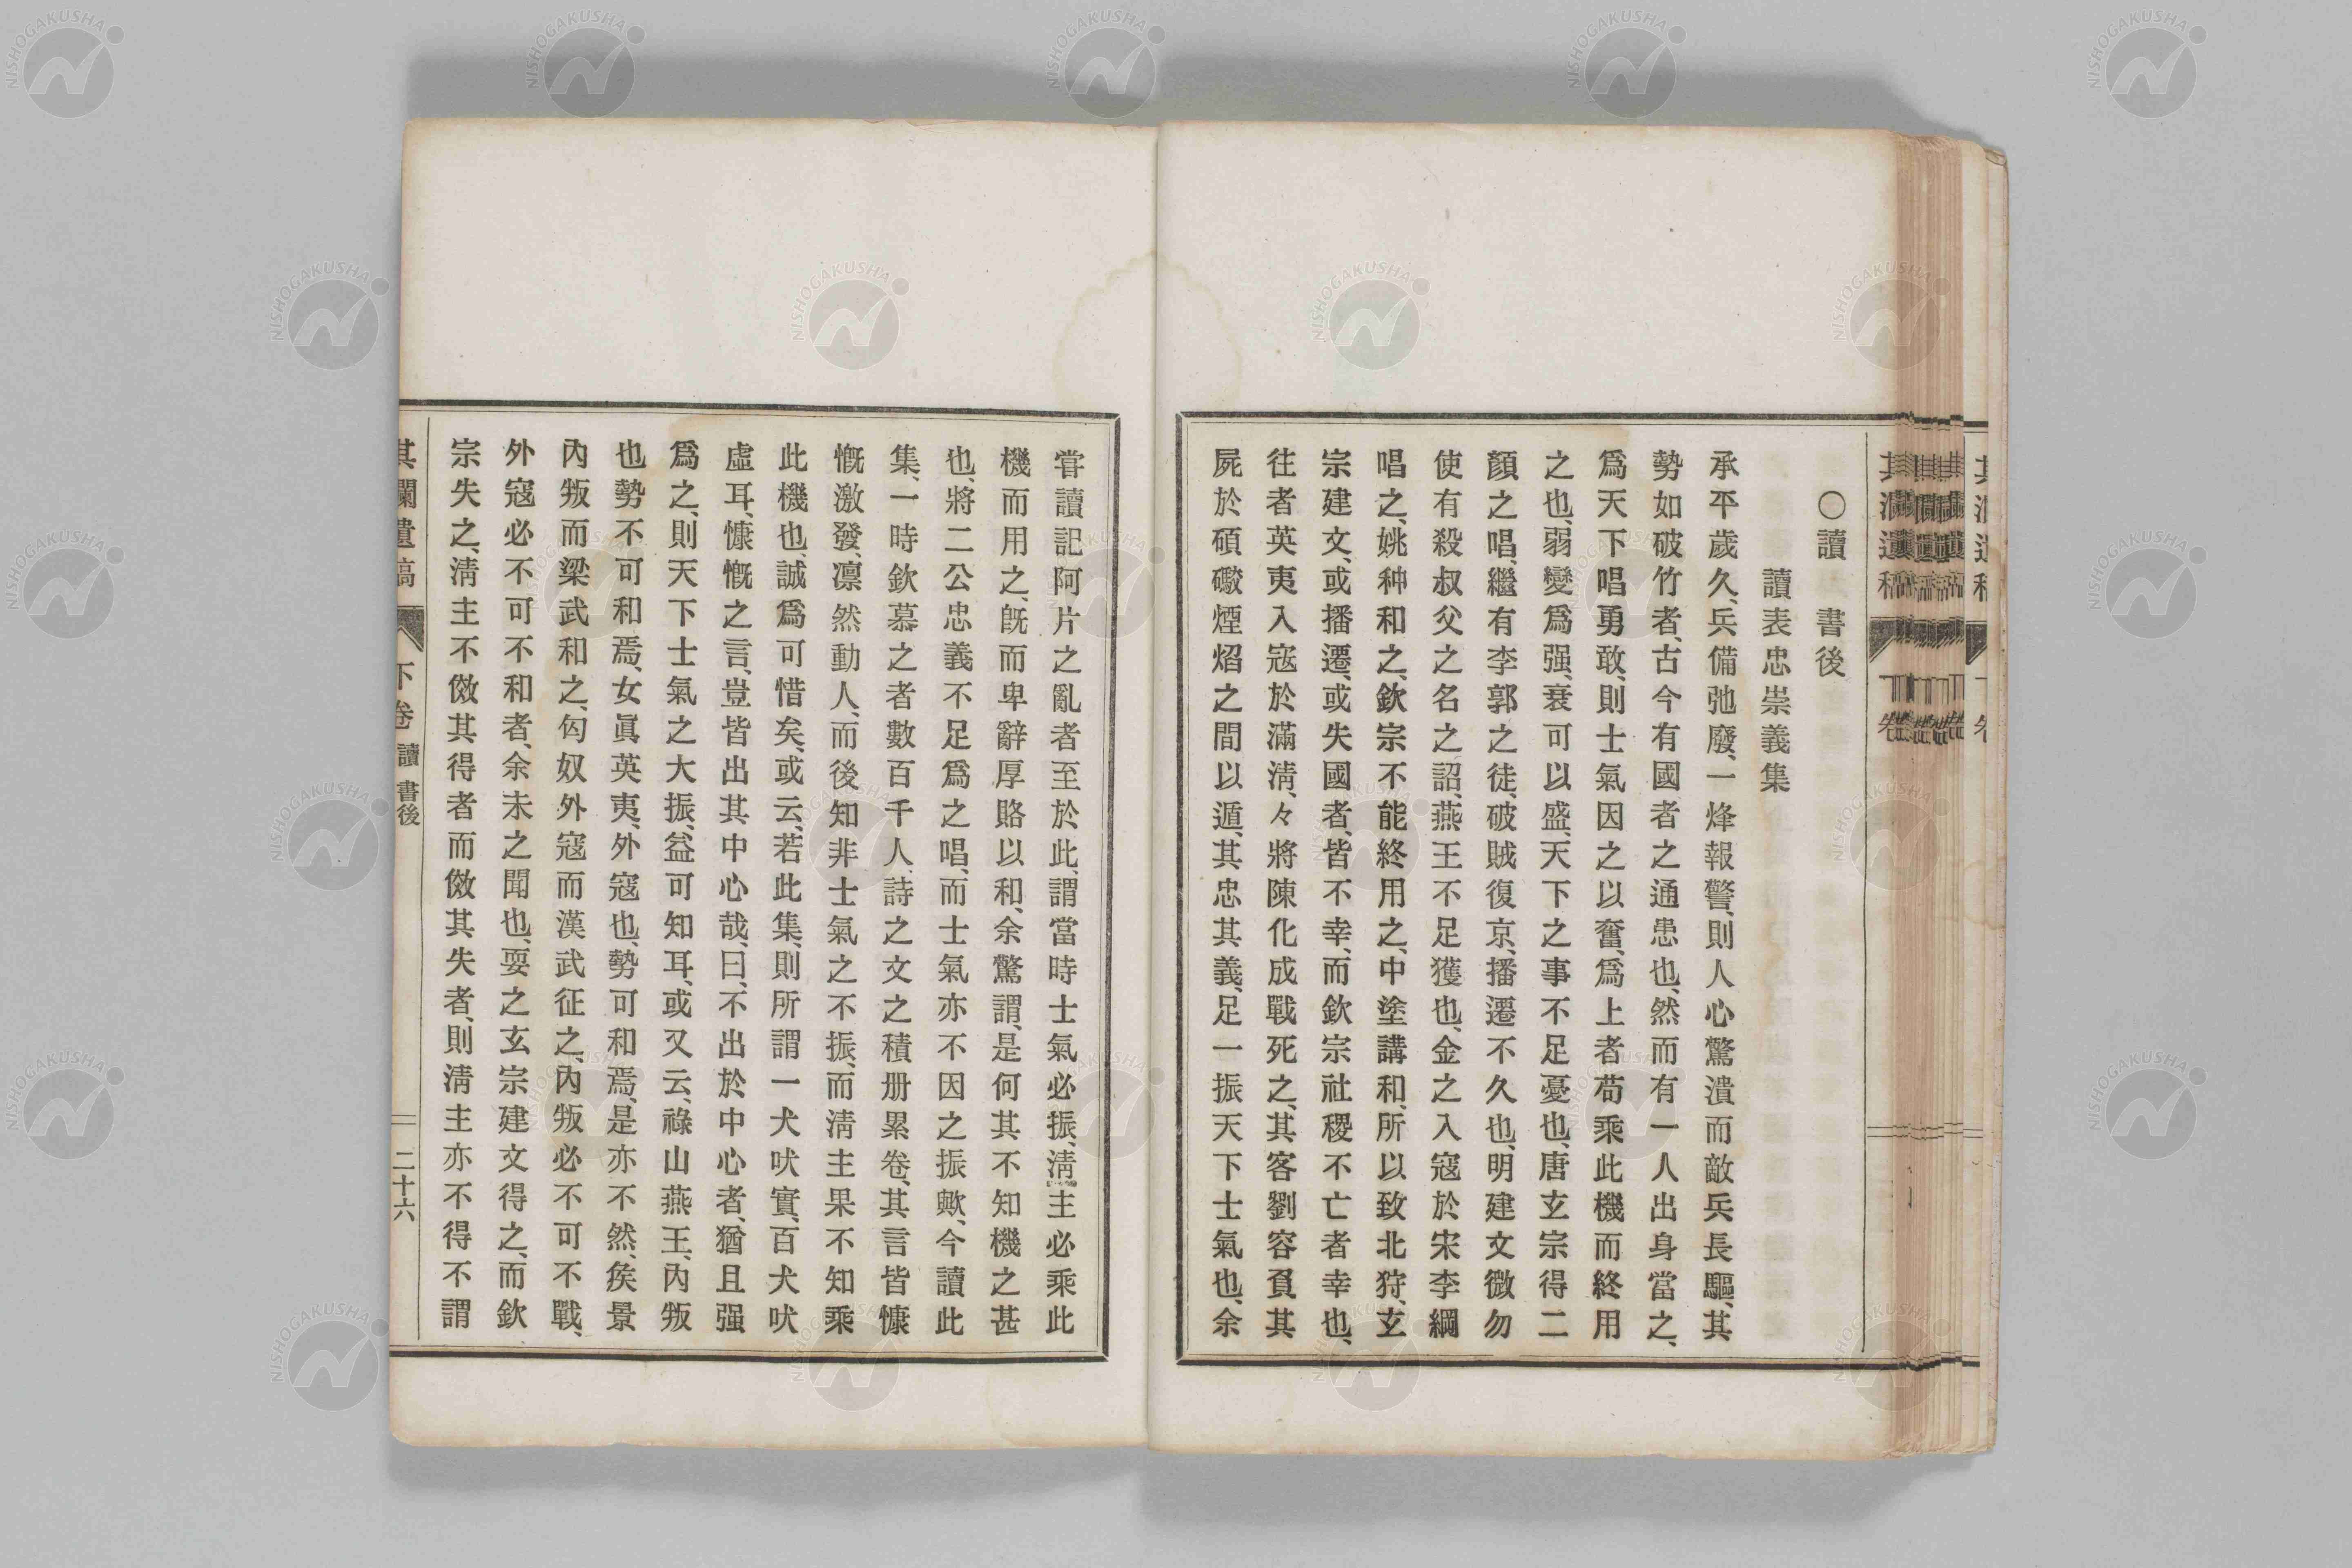 ○讀　書後
讀表忠崇義集
承平歲久、兵備弛廢、一烽報警、則人心驚潰而敵兵長驅、其
勢如破竹者、古今有國者之通患也、然而有一人出身當之、
爲天下唱勇敢、則士氣因之以奮、爲上者苟乘此機而終用
之也、弱變爲强、衰可以盛、天下之事不足憂也、唐玄宗得二
顏之唱、繼有李郭之徒、破賊復京、播遷不久也、明建文微勿
使有殺叔父之名之詔、燕王不足獲也、金之入寇於宋李綱
唱之、姚种和之、欽宗不能終用之、中塗講和、所以致北狩、玄
宗建文、或播遷、或失國者、皆不幸、而欽宗社稷不亡者幸也、
往者英夷入寇於滿淸、々將陳化成戰死之、其客劉容負其
屍於碩礮煙熖之間以遁、其忠其義、足一振天下士氣也、余
甞讀記阿片之亂者至於此、謂當時士氣必振、淸主必乘此
機而用之、旣而卑辭厚賂以和、余驚謂、是何其不知機之甚
也、將二公忠義不足爲之唱、而士氣亦不因之振歟、今讀此
集、一時欽慕之者數百千人、詩之文之積册累卷、其言皆慷
慨激發、凛然動人、而後知非士氣之不振、而淸主果不知乘
此機也、誠爲可惜矣、或云、若此集、則所謂一犬吠實、百犬吠
虛耳、慷慨之言、豈皆出其中心哉、曰、不出於中心者、猶且强
爲之、則天下士氣之大振、益可知耳、或又云、祿山燕王、內叛
也、勢不可和焉、女眞英夷、外寇也、勢可和焉、是亦不然、矦景
內叛而梁武和之、匈奴外寇而漢武征之、內叛必不可不戰、
外寇必不可不和者、余未之聞也、要之玄宗建文得之、而欽
宗失之、淸主不倣其得者而倣其失者、則淸主亦不得不謂
其瀾遺稿　下卷　讀　書後　二十六